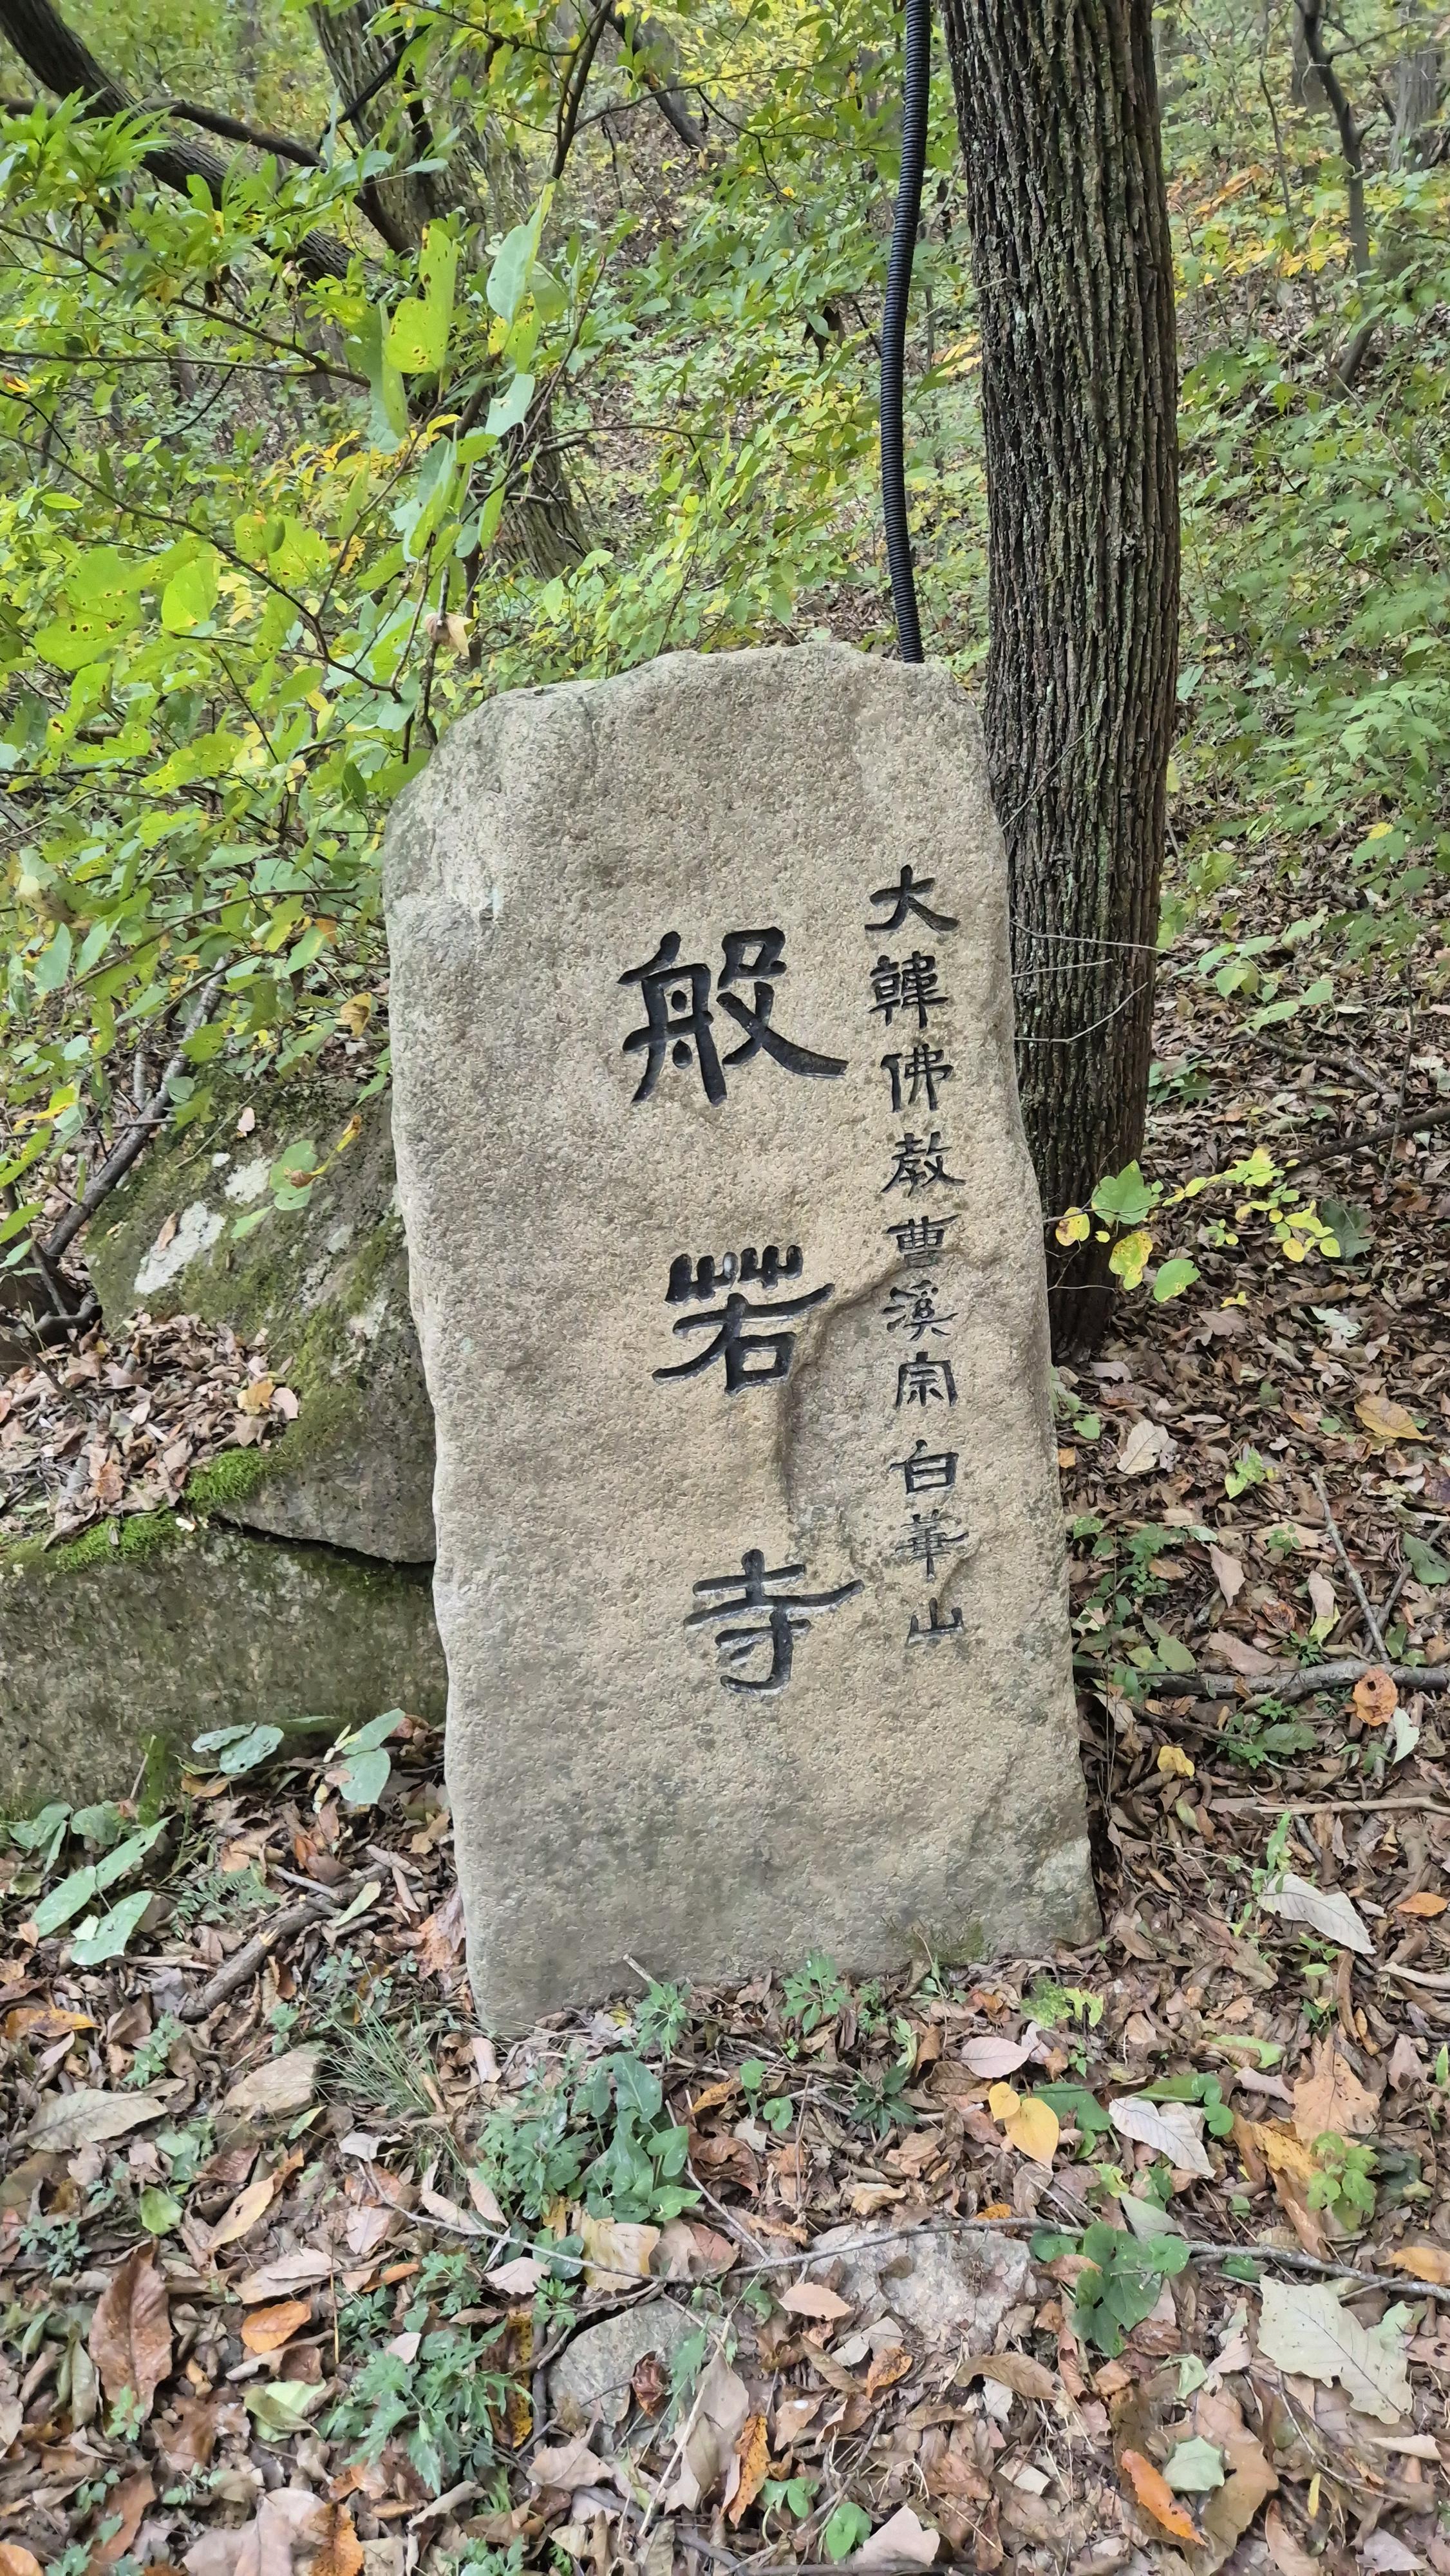 大韓佛敎曹溪宗白華山
般若寺